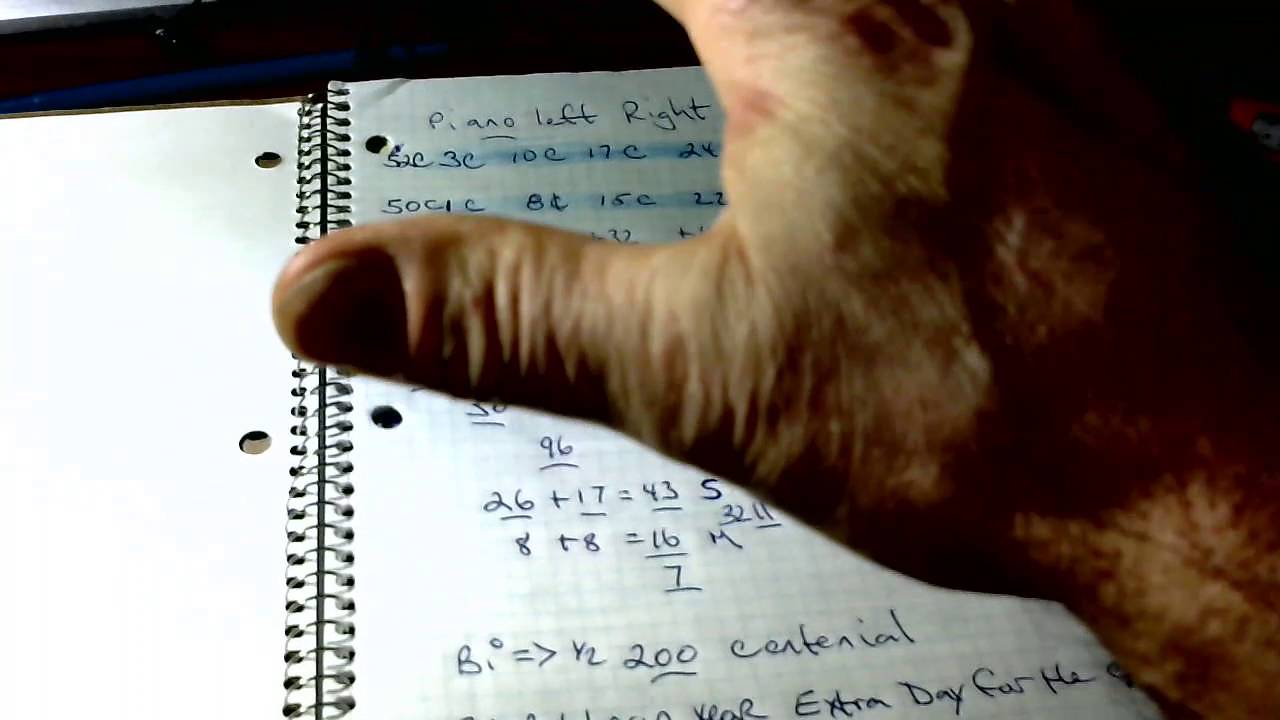 Piano left Right
52C 3C 10C 17C 24
50C1C 8C 15C 22
+32
96
26 + 17 = 43 S
32 11
8 + 8 = 16 M
7
Bi => 1/2 200 centenial
year Extra Day for the